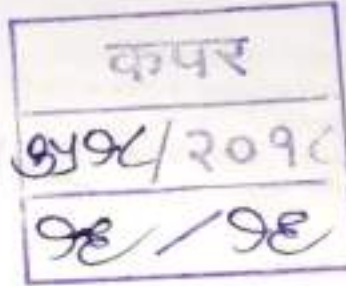 कपर
७५१८/२०१८
१६/१६